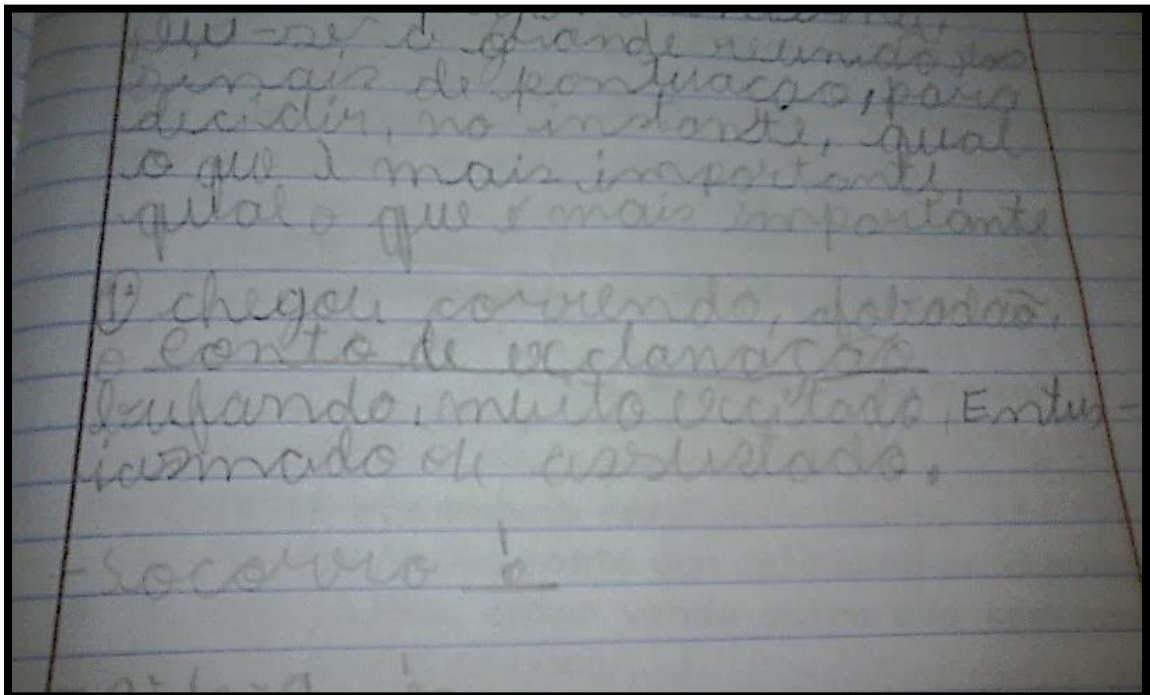 deu-se a grande reunião dos
sinais de pontuação, para
decidir, no instante, qual
o que é mais importante,
qual o que é mais importante
1º chegou correndo,
o Ponto de exclamação
bufando, muito excitado, Entus-
iasmado ou assustado.
-Socorro !